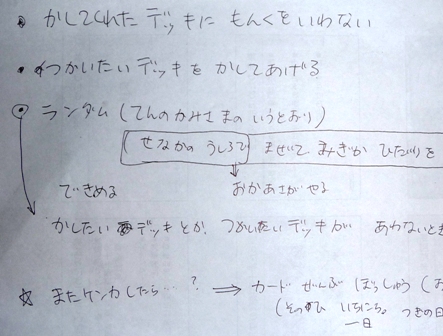 • かしてくれた デッキに もんくを いわない
• つかいたい デッキを かしてあげる
ランダム (てんのかみさまの いうとおり)
(せなかの うしろで まぜて、みぎか ひだりを
できめる おかあさがやる
かしたい デッキとか、つかいたい デッキが あわないとき
☆ またケンカしたら…? ⇒ カード ぜんぶ ぼっしゅう (お
いちにち。つぎの日
一日